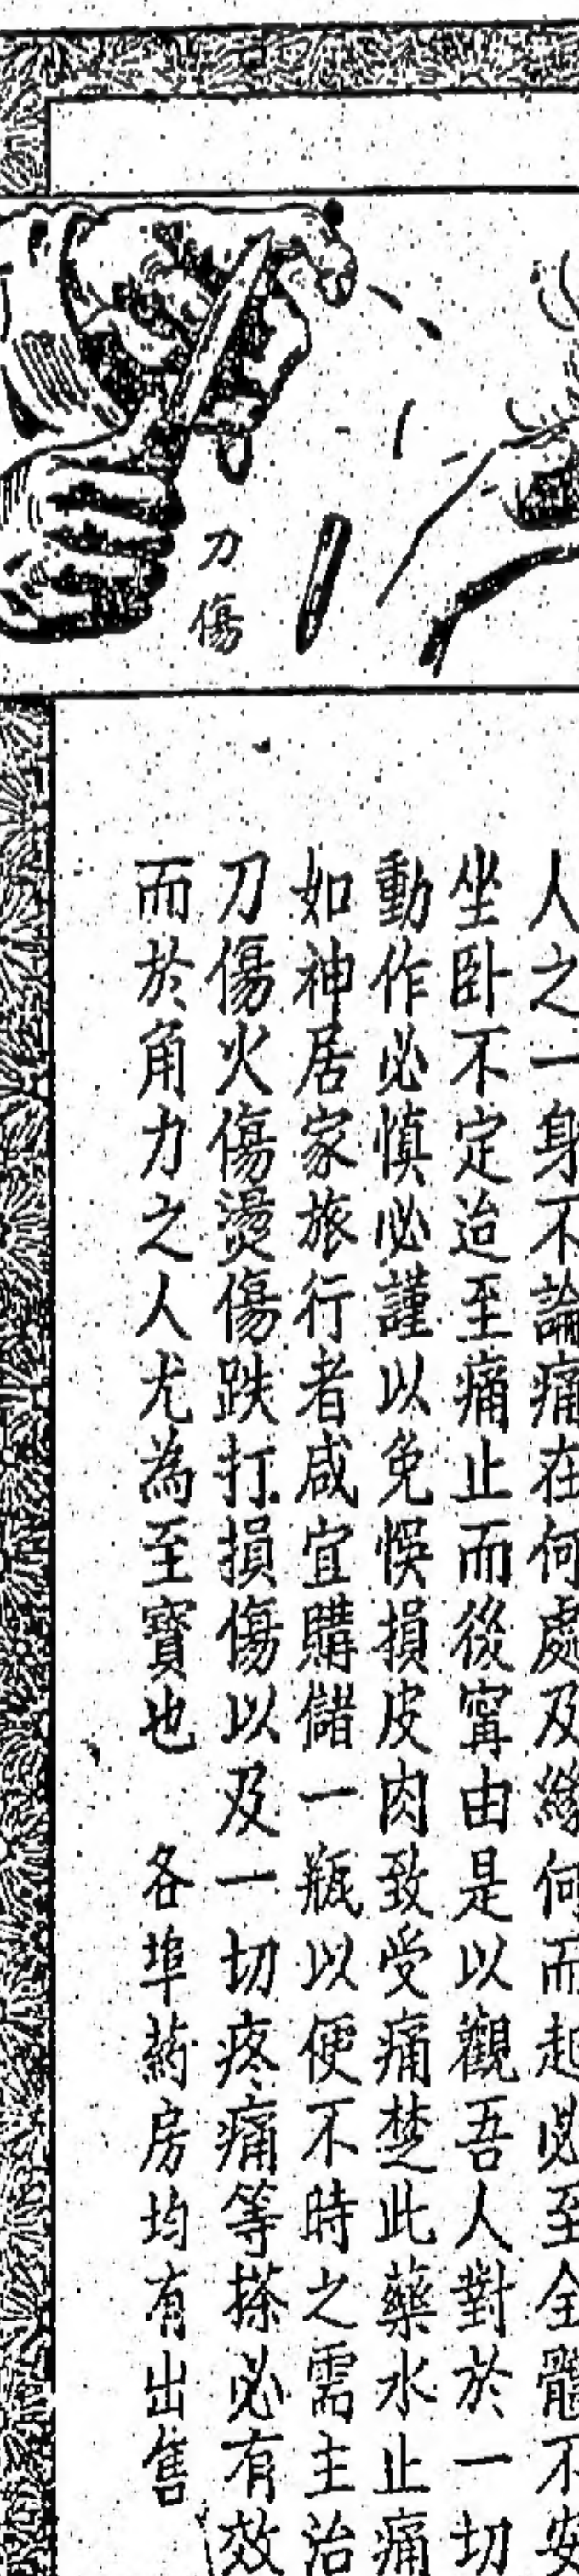 刀傷
人之一身不論痛在何處及緣何而起必至全體不安
坐卧不定迨至痛止而後寗由是以觀吾人對於一切
動作必慎必謹以免悞損皮肉致受痛楚此藥水止痛
如神居家旅行者咸宜購儲一瓶以便不時之需主治
刀傷火傷燙傷跌打損傷以及一切疼痛等搽必有效
而於角力之人尤為至寶也　各埠葯房均有出售